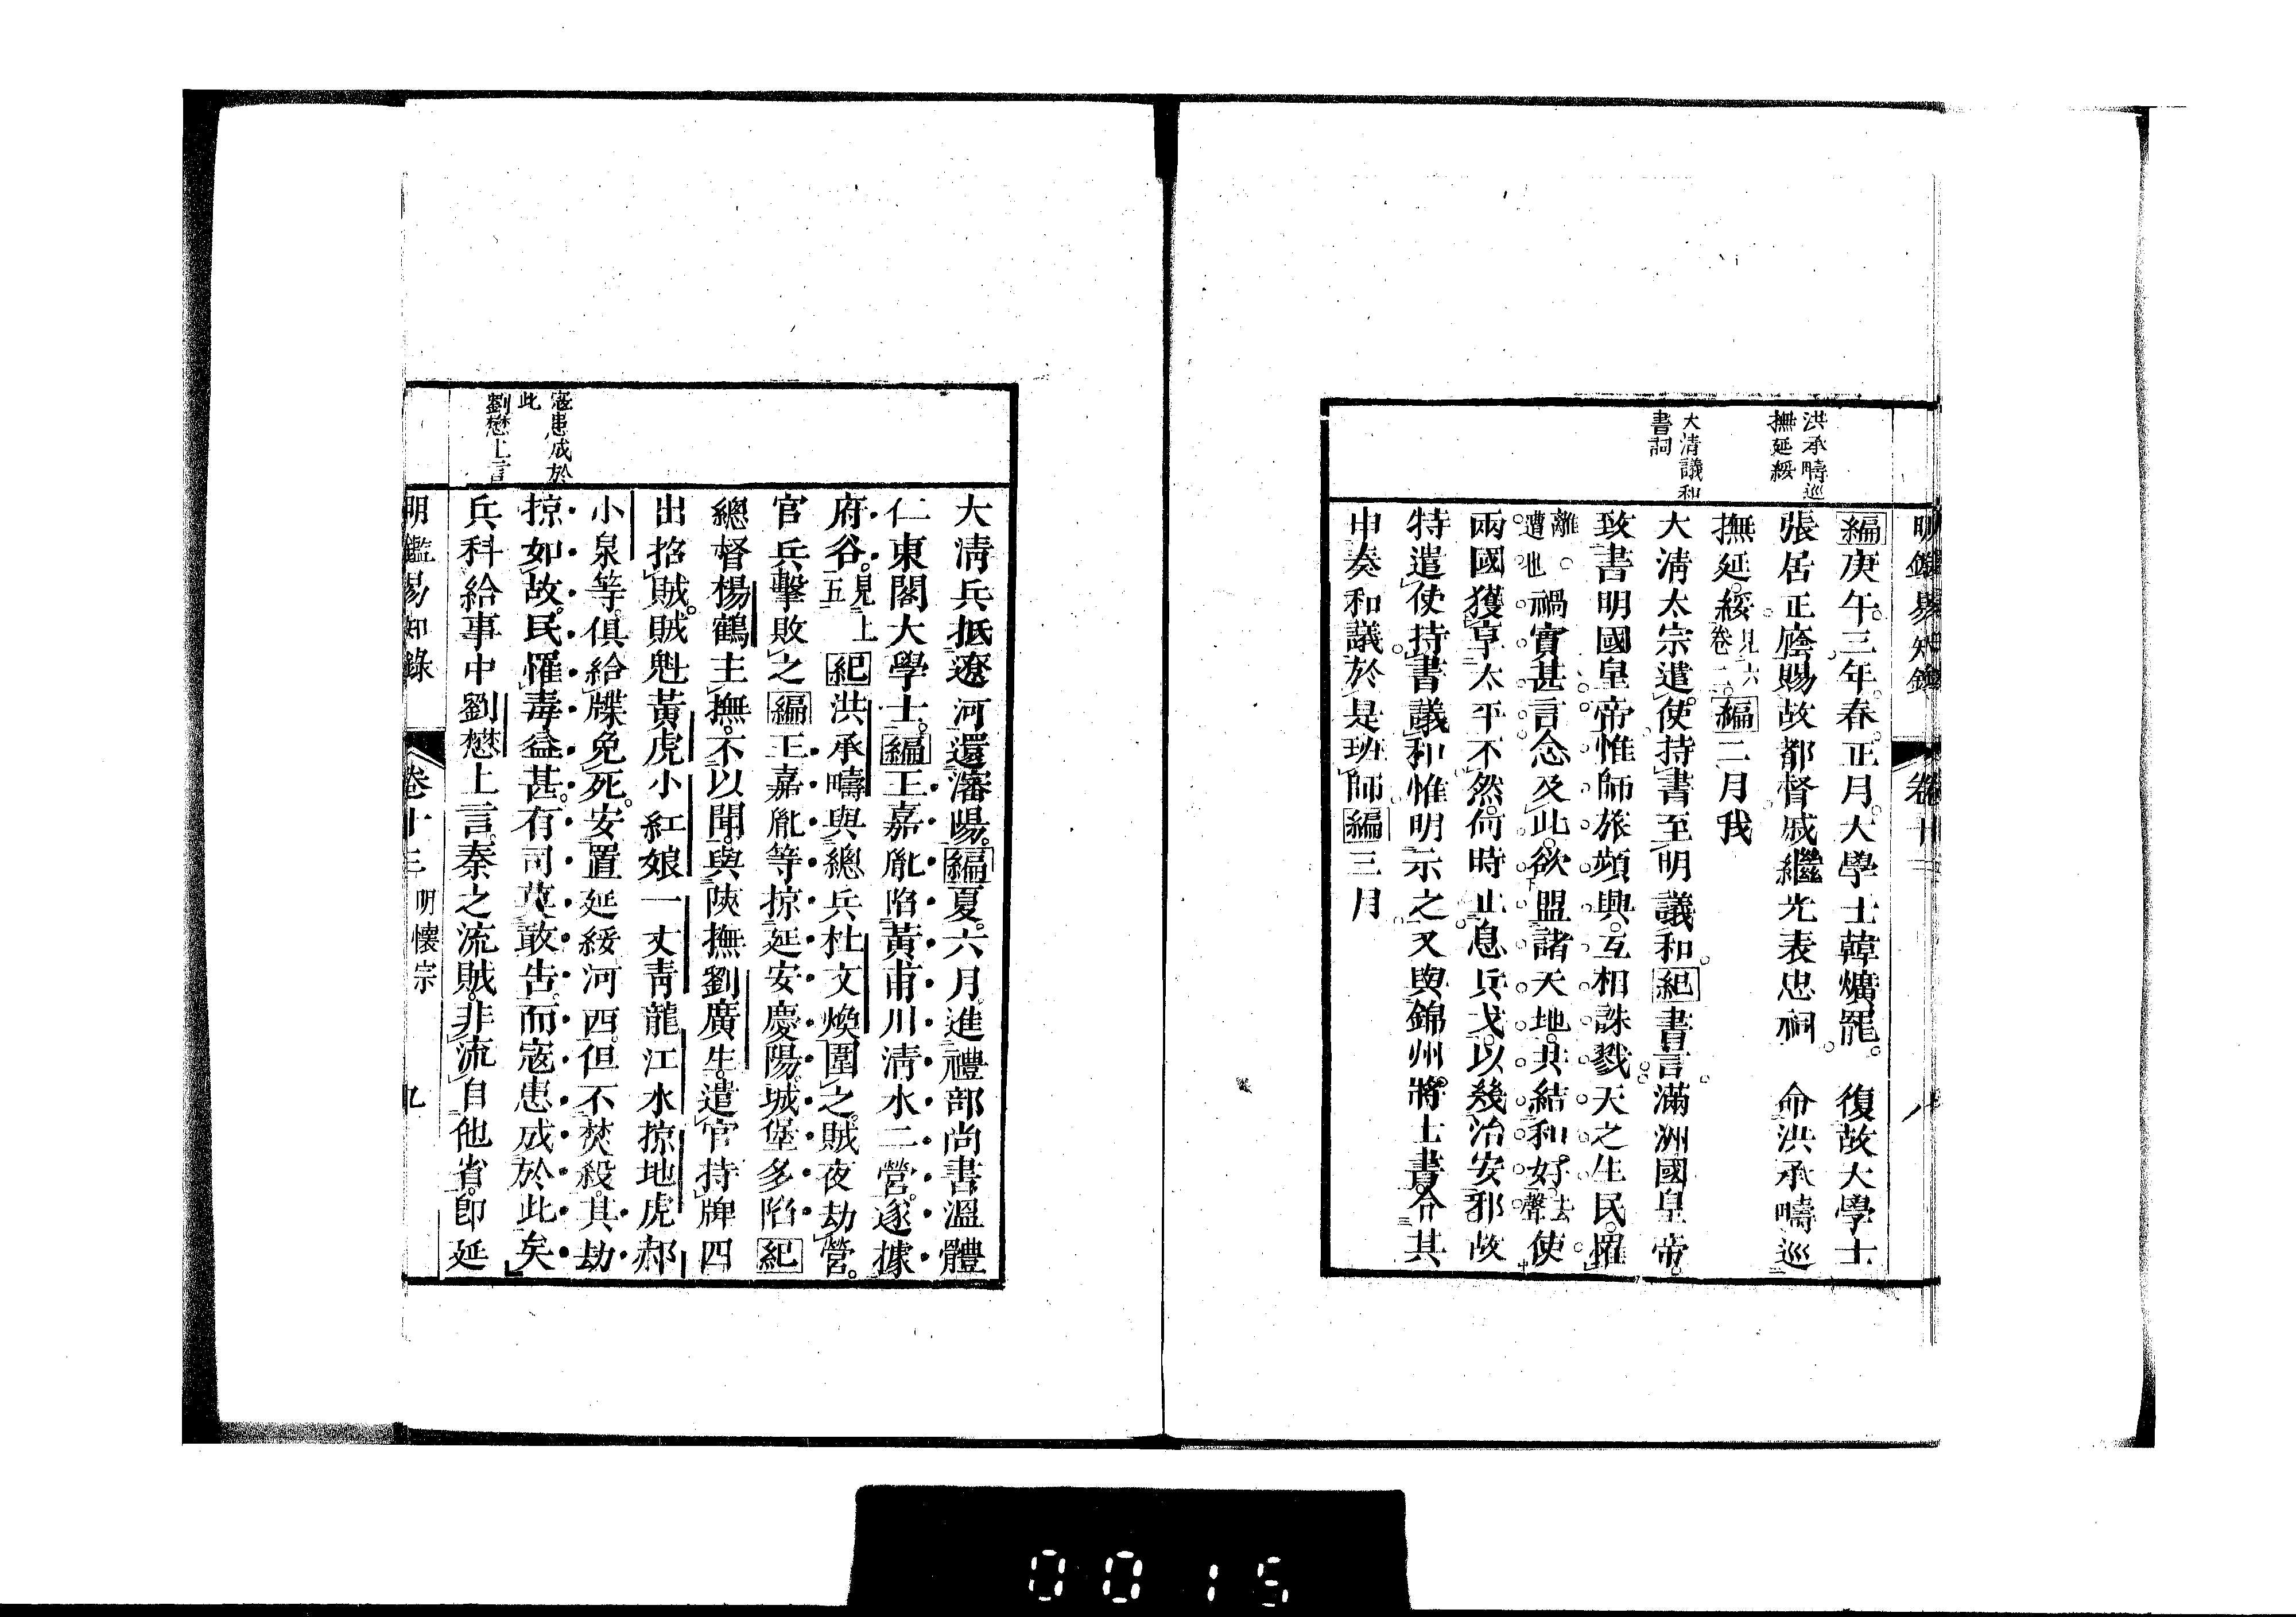 明鑑易知錄 卷十三 八
洪承疇巡
撫延綏
大清議和
書詞
編庚午三年春正月大學士韓爌罷。 復故大學士
張居正廕賜故都督戚繼光表忠祠 命洪承疇巡
撫延綏見六卷二編二月我
大清太宗遣使持書至明議和紀書言滿洲國皇帝
致書明國皇帝惟師旅頻興互相誅戮天之生民罹
離遭也禍實甚言念及此欲盟諸天地共結和好去聲使
兩國獲享太平不然何時止息兵戈以幾治安邪故
特遣使持書議和惟明示之又與錦州將士書令其
申奏和議於是班師編三月
大清兵抵遼河還瀋陽編夏六月進禮部尚書溫體
仁東閣大學士編王嘉胤陷黃甫川清水二營遂據
府谷見上五紀洪承疇與總兵杜文煥圍之賊夜劫營
官兵擊敗之編王嘉胤等掠延安慶陽城堡多陷紀
總督楊鶴主撫不以聞與陝撫劉廣生遣官持牌四
出招賊賊魁黃虎小紅娘一丈青龍江水掠地虎郝
小泉等俱給牒免死安置延綏河西但不焚殺其劫
掠如故民罹毒益甚有司莫敢告而寇患成於此矣
兵科給事中劉懋上言秦之流賊非流自他省即延
寇患成於
此
劉懋上言
明鑑易知錄 卷十三 明懷宗 九
0015